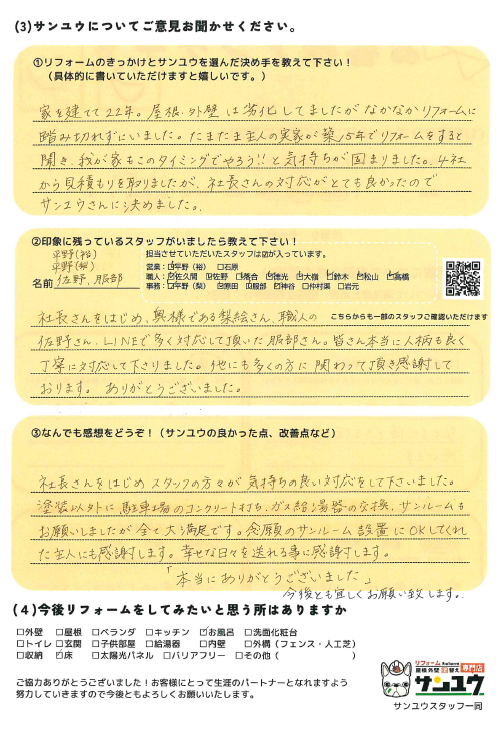 (3)サンユウについてご意見お聞かせください。
①リフォームのきっかけとサンユウを選んだ決め手を教えて下さい！
（具体的に書いていただけますと嬉しいです。）
家を建てて22年。屋根、外壁は劣化してましたがなかなかリフォームに
踏み切れずにいました。たまたま主人の実家が築15年でリフォームをすると
聞き、我が家もこのタイミングでやろう!!と気持ちが固まりました。4社
から見積もりを取りましたが、社長さんの対応がとても良かったので
サンユウさんに決めました。
②印象に残っているスタッフがいましたら教えて下さい！
平野(裕)
平野(梨)
名前 佐野、服部
担当させていただいたスタッフは☑が入っています。
営業：☑平野（裕） □石原
職人：☑佐久間 ☑佐野 ☑落合 ☑徳光 □大嶺 ☑鈴木 ☑松山 ☑高橋
事務：☑平野（梨） ☑原田 ☑服部 ☑神谷 □仲村渠 □岩元
こちらからも一部のスタッフご確認いただけます
社長さんをはじめ、奥様である梨絵さん、職人の
佐野さん、LINEで多く対応して頂いた服部さん。皆さん本当に人柄も良く
丁寧に対応して下さりました。他にも多くの方に関わって頂き感謝して
おります。ありがとうございました。
③なんでも感想をどうぞ！（サンユウの良かった点、改善点など）
社長さんをはじめスタッフの方々が気持ちの良い対応をして下さいました。
塗装以外に駐車場のコンクリート打ち、ガス給湯器の交換、サンルームも
お願いしましたが全て大満足です。念願のサンルーム設置にOKしてくれ
た主人にも感謝します。幸せな日々を送れる事に感謝します。
「本当にありがとうございました」
今後とも宜しくお願い致します。
(4)今後リフォームをしてみたいと思う所はありますか
□外壁 □屋根 □ベランダ □キッチン ☑お風呂 □洗面化粧台
□トイレ □玄関 □子供部屋 □給湯器 □内壁 □外構（フェンス・人工芝）
□収納 ☑床 □太陽光パネル □バリアフリー □その他（ ）
ご協力ありがとうございました！お客様にとって生涯のパートナーとなれますよう
努力していきますので今後ともよろしくお願いいたします。
リフォーム Reform
屋根外壁塗り替え専門店
サンユウ
サンユウスタッフ一同